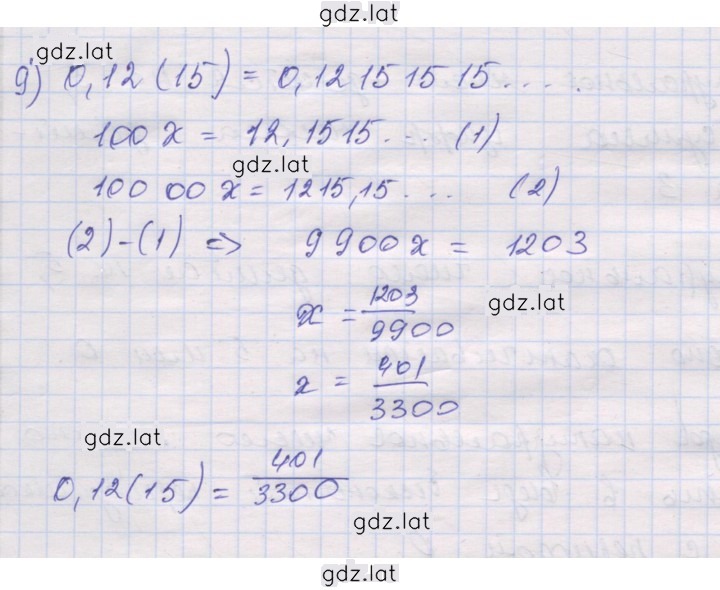 gdz.lat
gdz.lat
д) 0,12(15) = 0,12151515....
100x = 12,1515... (1)
gdz.lat
10000x = 1215,15... (2)
(2)-(1) => 9900x = 1203
x = 1203/9900
gdz.lat
x = 401/3300
gdz.lat
0,12(15) = 401/3300
gdz.lat
gdz.lat